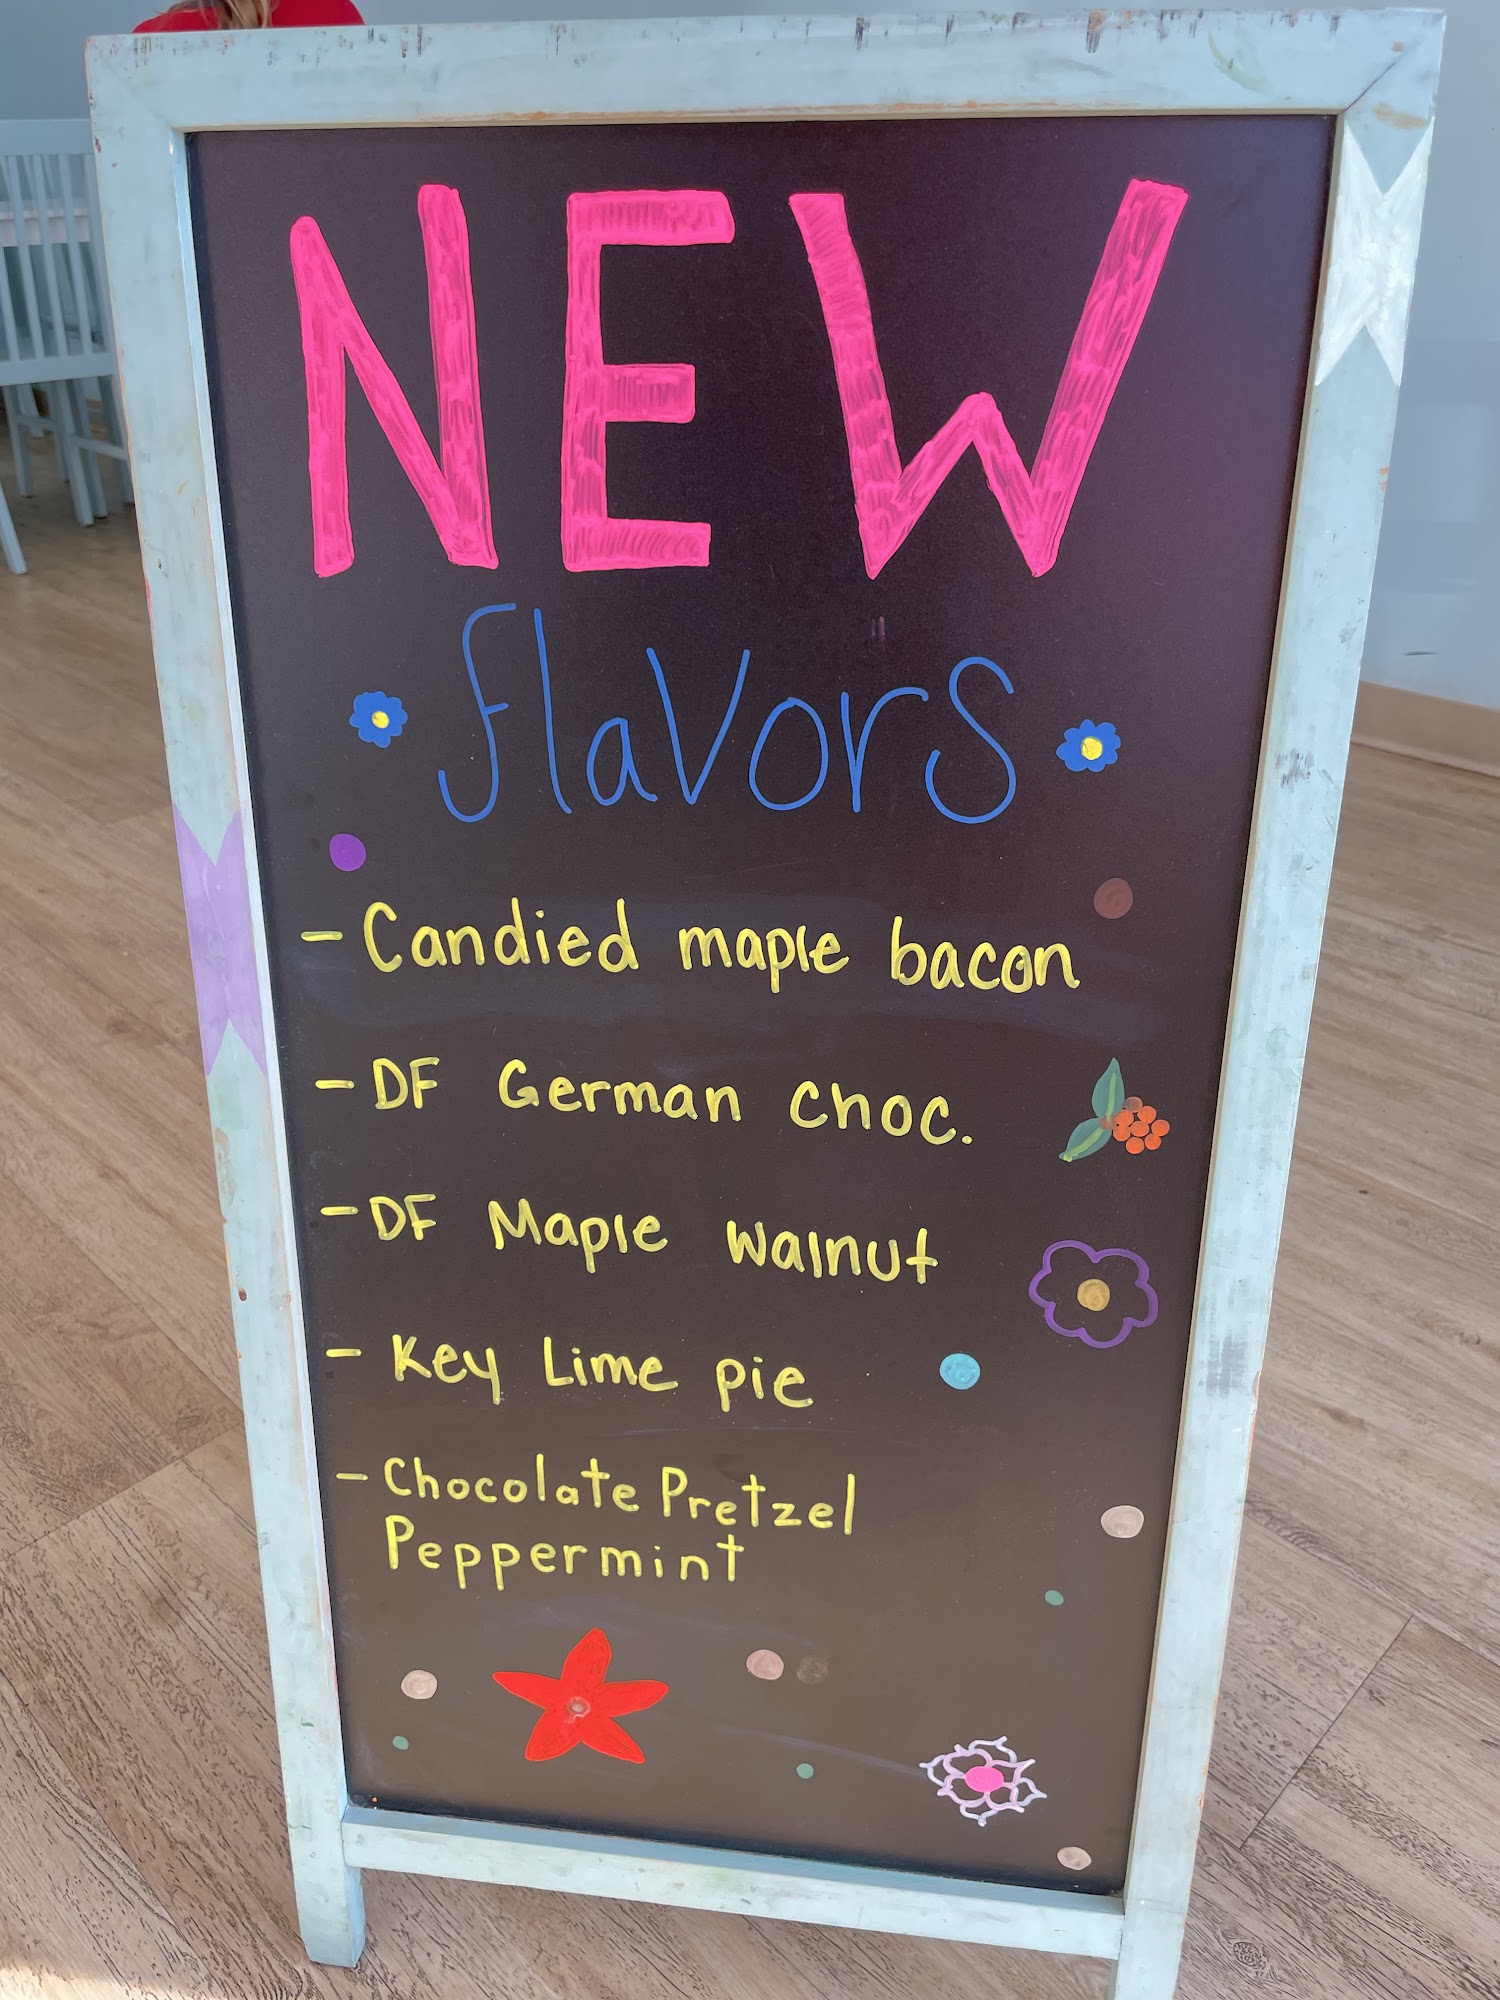 NEW
flavors
- Candied maple bacon
- DF German choc.
- DF Maple walnut
- Key Lime pie
- Chocolate Pretzel
Peppermint